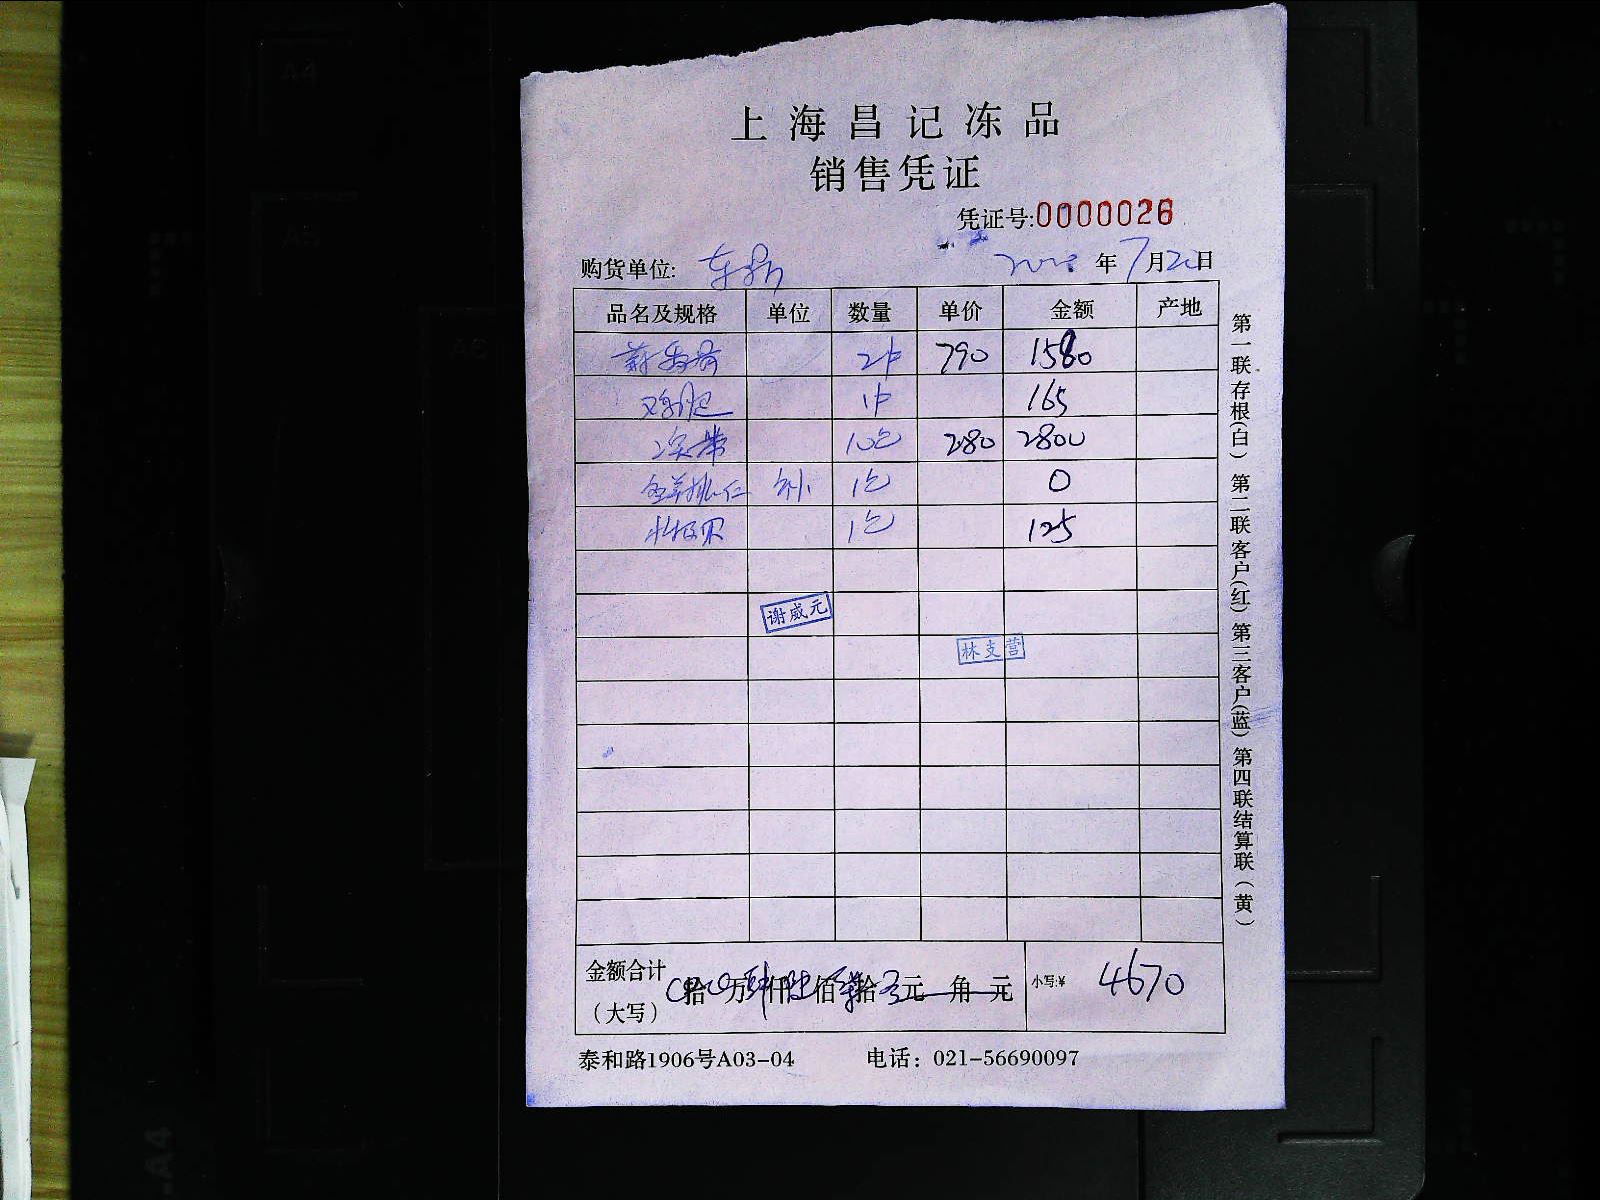 上海昌记冻品
销售凭证
凭证号:0000026
购货单位: 东 年7月20日
品名及规格 单位 数量 单价 金额 产地
2件 790 1580
1件 165
10包 280 2800
补 1包 0
1包 125
谢威元
林支营
金额合计 拾 万 仟 佰 拾 元 角 元 小写:¥ 4670
（大写）
泰和路1906号A03-04 电话：021-56690097
第一联存根(白) 第二联客户(红) 第三客户(蓝) 第四联结算联(黄)
A4
A5
A6
A4